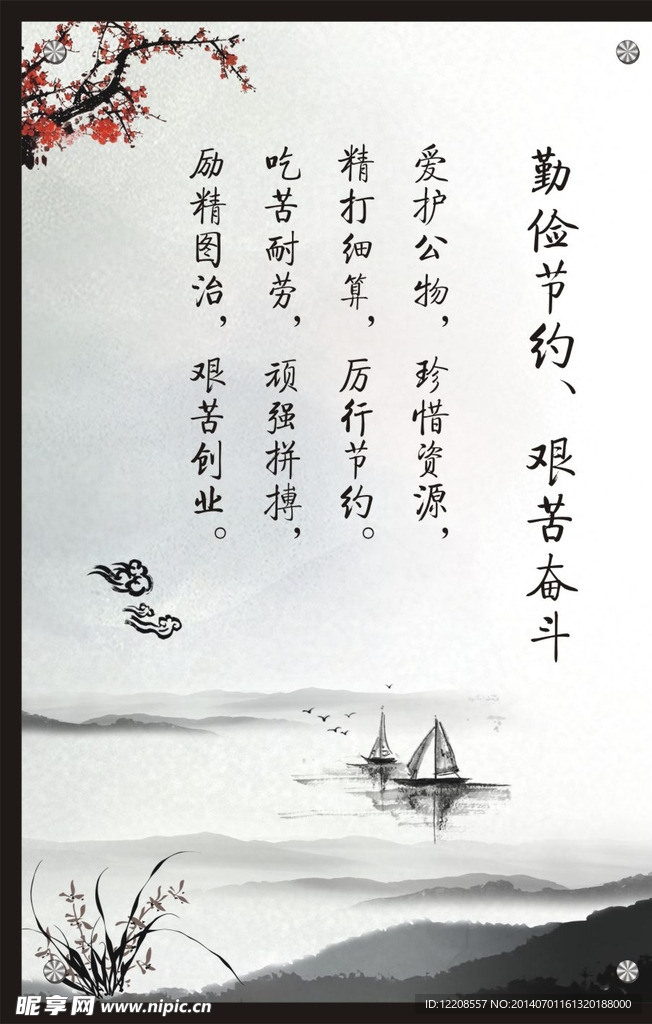 勤俭节约、艰苦奋斗
爱护公物，珍惜资源，
精打细算，厉行节约。
吃苦耐劳，顽强拼搏，
励精图治，艰苦创业。
昵享网 www.nipic.cn
ID:12208557 NO:20140701161320188000